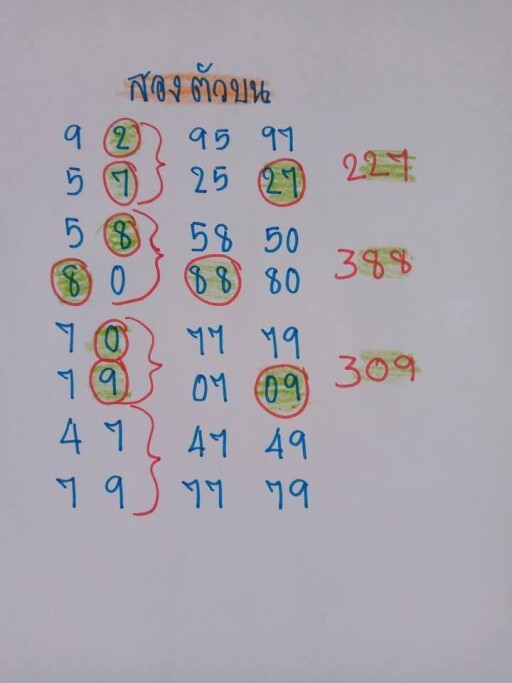 สองตัวบน
9 2 95 97
5 7 25 27 227
5 8 58 50
8 0 88 80 388
7 0 77 79
7 9 07 09 309
4 7 47 49
7 9 77 79